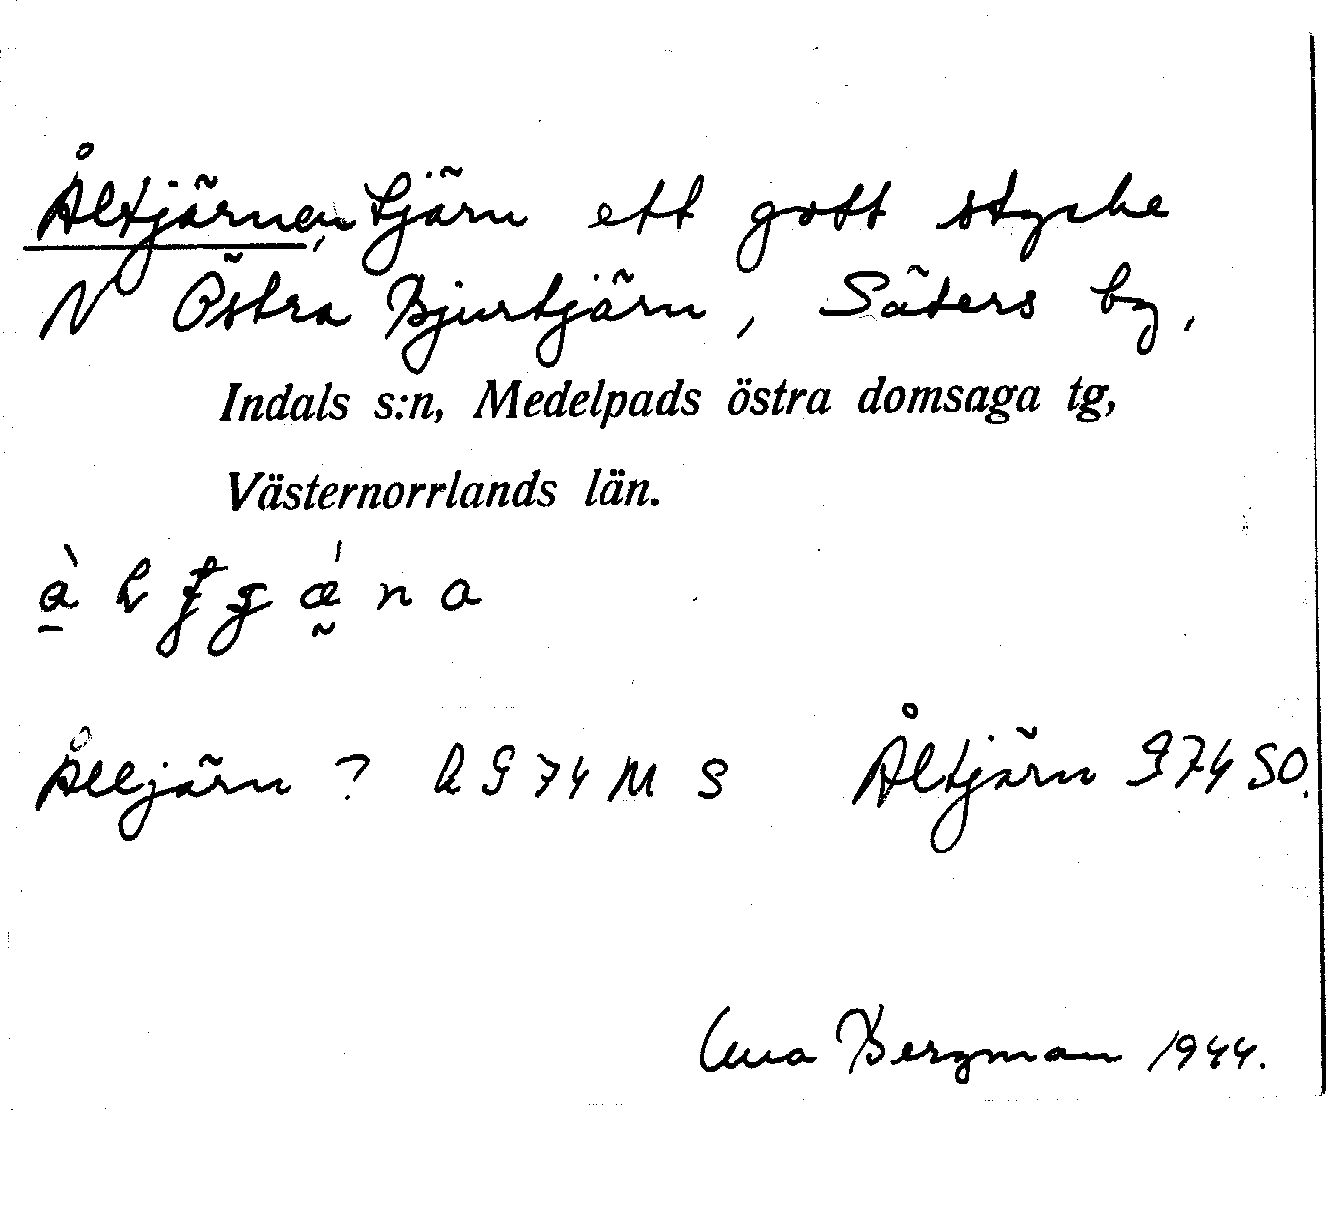 Åltjärnen, tjärn ett gott stycke
N Östra Bjurtjärn, Säters by,
Indals s:n, Medelpads östra domsaga tg,
Västernorrlands län.
Ålljärn ? G74 M S Åltjärn G74 SO.
Bergman 1944.